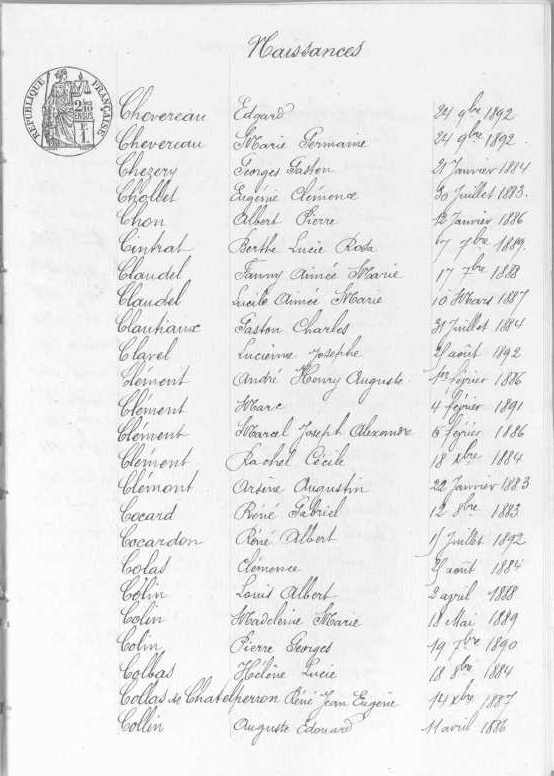 Naissances
RÉPUBLIQUE FRANÇAISE
Chevereau Edgard 24 9bre 1892
Chevereau Marie Germaine 24 9bre 1892
Chezery Georges Gaston 21 Janvier 1884
Chollet Eugénie Clémence 30 Juillet 1883.
Chon Albert Pierre 12 Janvier 1886
Cintrat Berthe Lucie Rosa 7 7bre 1889.
Claudel Fanny Aimée Marie 17 7bre 1888
Claudel Lucile Aimée Marie 10 Mars 1887
Clautiaux Gaston Charles 31 Juillet 1884
Clavel Lucienne Josephe août 1892
Clément André Henry Auguste 1er février 1886
Clément Marc 4 février 1891
Clément Marcel Joseph Alexandre février 1886
Clément Rachel Cécile 18 xbre 1884
Clémont Arsène Augustin 22 Janvier 1883
Cocard Réné Gabriel 12 8bre 1883
Cocardon Réné Albert Juillet 1892
Colas Clémence août 1884
Colin Louis Albert 2 avril 1888
Colin Madeleine Marie 18 Mai 1889
Colin Pierre Georges 19 7bre 1890
Colbas Hélène Lucie 18 8bre 1884
Collas de Chatelperron Réné Jean Eugène 14 xbre 1887
Collin Auguste Edouard 11 avril 1886